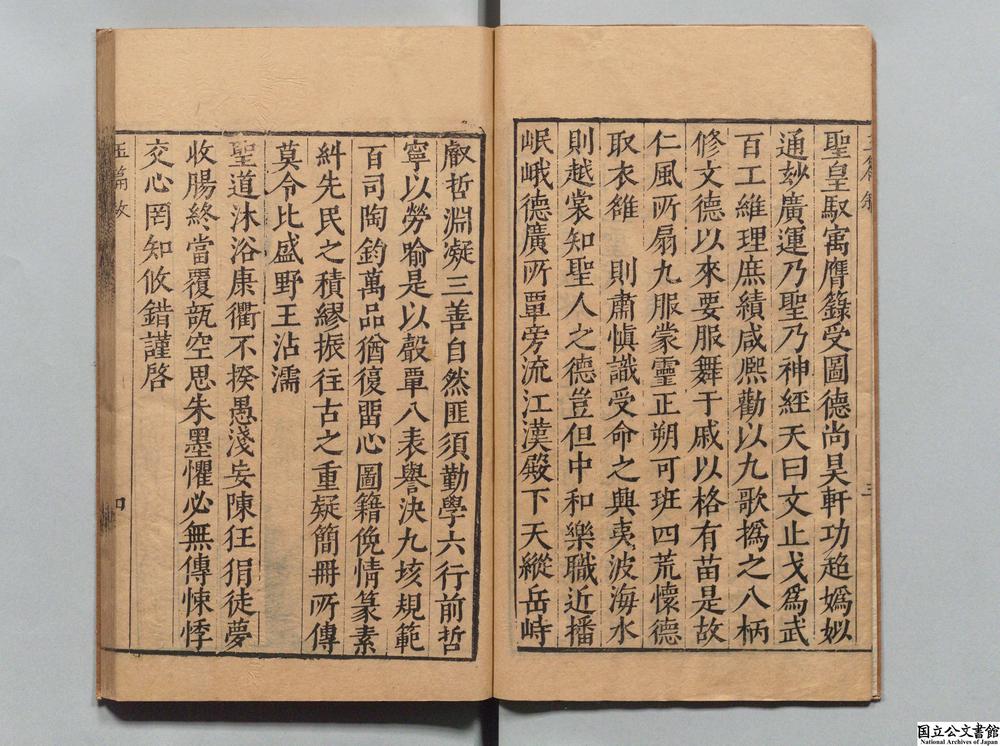 聖皇馭寓膺籙受圖德尚昊軒功趂媯姒
通玅廣運乃聖乃神經天曰文止戈爲武
百工維理庶績咸熈勸以九歌撝之八柄
修文德以來要服舞于戚以格有苗是故
仁風所扇九服蒙靈正朔可班四荒懷德
取衣雒　則肅慎識受命之興夷波海水
則越裳知聖人之德豈但中和樂職近播
岷峨德廣所覃旁流江漢殿下天縱岳峙
叡哲淵凝三善自然匪須勤學六行前哲
寧以勞喻是以聲覃八表譽決九垓規範
百司陶鈞萬品猶復畱心圖籍俛情篆素
糾先民之積繆振往古之重疑簡冊所傳
莫令比盛野王沾濡
聖道沐浴康衢不揆愚淺妄陳狂狷徒夢
收腸終當覆瓿空思朱墨懼必無傳悚悸
交心罔知攸錯謹啓
玉篇
四
国立公文書館
National Archives of Japan